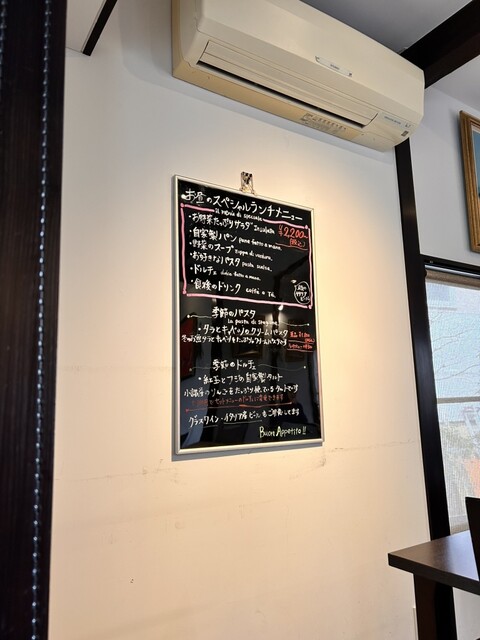 お昼のスペシャルランチメニュー
il menu di speciale
・お野菜たっぷりサラダ Insalata ¥2,200-
・自家製パン pane fatto a mano. (税込)
・野菜のスープ zuppa di verdura.
・お好きなパスタ pasta scelta.
・ドルチェ dolce fatto a mano.
・食後のドリンク caffè o tè.
季節のパスタ
la pasta di stagione
・タラとキャベツのクリームパスタ
季節のドルチェ
・紅玉とフジの自家製タルト
りんごをたっぷり使っているタルトです
グラスワイン・イタリア産ビールもご用意してます
Buon Appetito!!